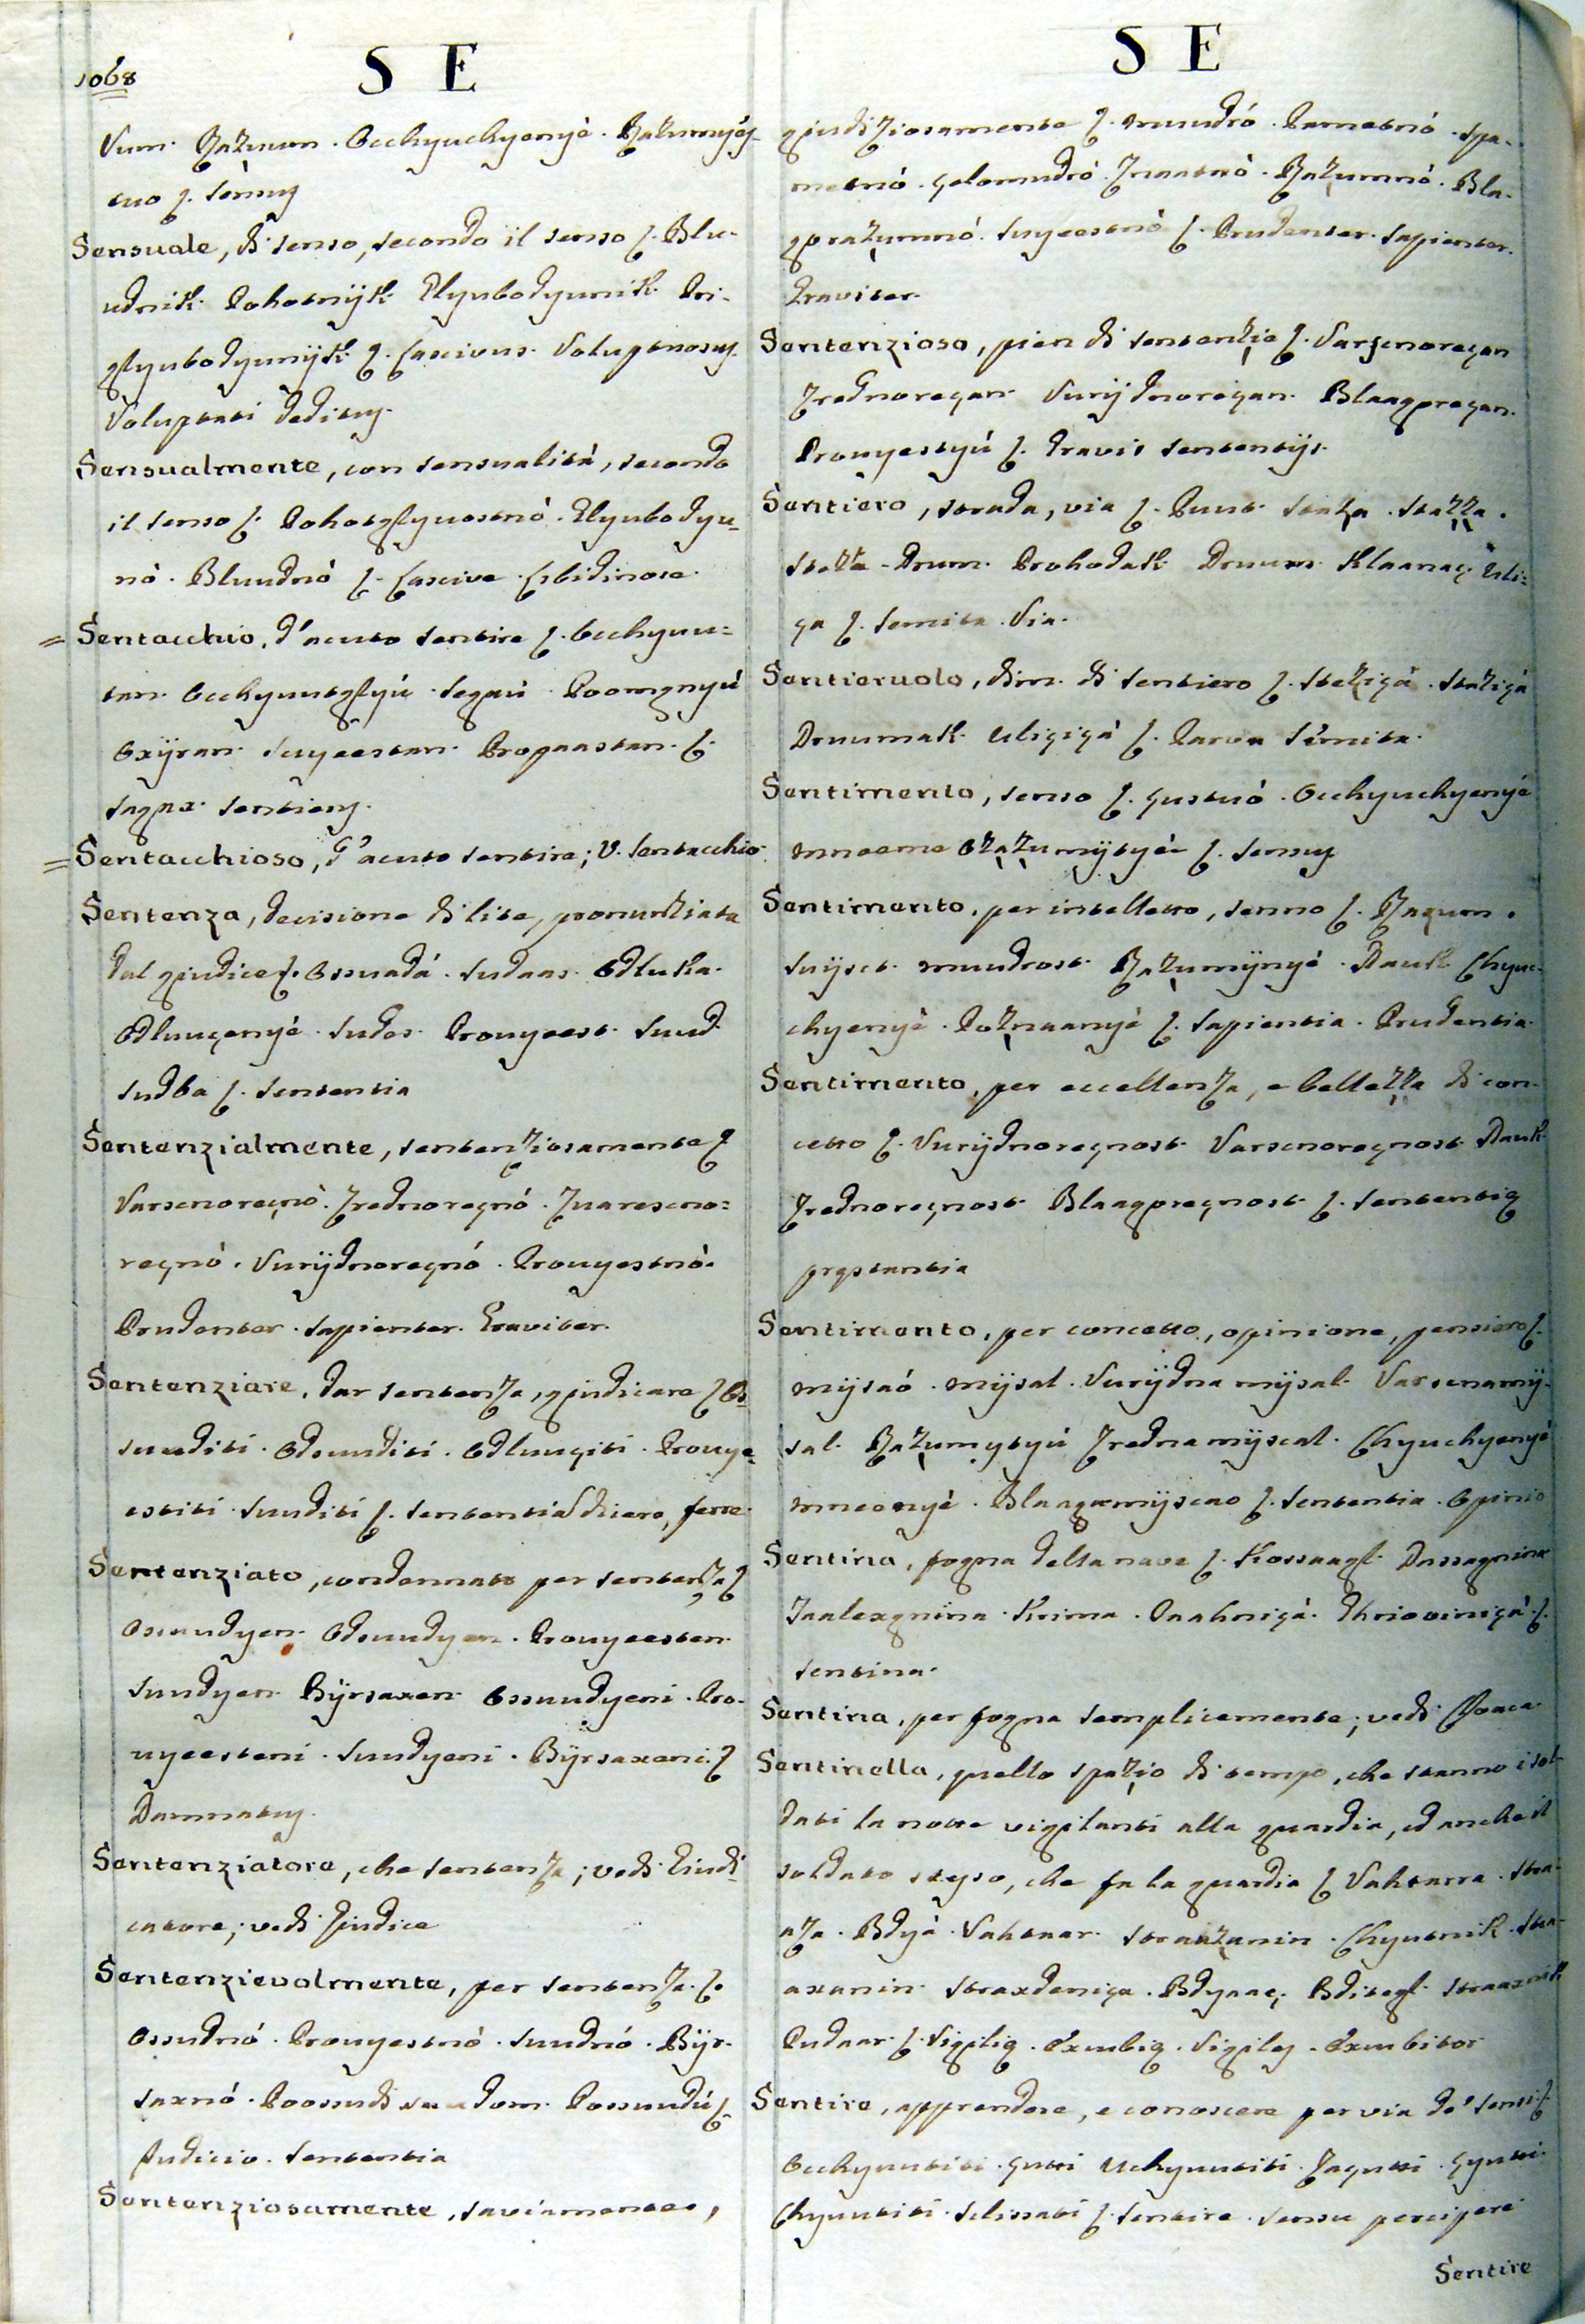 1068
S E
Vum. Razuum. Occhyuchyenyé. Razumyéy-
tuo ſ. sensus
Sensuale, di senso, secondo il senso ſ. Blu-
udnik. Pohotnijk. Glyubodyunik. Pri-
glyubodyunijk ſ. Lascivus. Voluptuosus.
Voluptati deditus.
Sensualmente, con sensualità, secondo
il senso ſ. Pohotglyuostnó. Glyubodyu-
nó. Bluudnó ſ. Lascive. Libidinose.
= Sentacchio, d'acuto sentire ſ. Occhyuu=
tan. Occhyuutglyú. Segau. Poomgnyú
oxÿran. suyeestan. Propaastan. ſ.
sagax. sentiens.
= Sentacchioso, d'acuto sentire; V. sentacchio.
Sentenza, decisione di lite, pronunziata
dal giudice ſ. Ossuadá. sudaas. Odluka.
Odluuçenyé. sudos. Prouyeest. suud.
sudba ſ. sententia
Sentenzialmente, sentenziosamente ſ
Varsenoreçnó. Zrednoreçnó. Zuaresno=
reçnó. Vurijdnoreçnó. Prouyestnó.
Prudenter. sapienter. Graviter.
Sentenziare, dar sentenza, giudicare ſ Os
suuditi. Odsuuditi. Odluuçiti. Prouye-
estiti. suuditi ſ. sententia dicere, ferre.
Sentenziato, condennato per sentenza ſ
Osuudyen. Odsuudyen. Prouyeesten.
suudyen. Bÿrsaxen. Ossuudyeni. Pro-
uyeesteni. suudyeni. Bÿrsaxeni. ſ
Damnatus.
Sentenziatore, che sentenza; vedi Giudi
catore; vedi Giudice
Sentenzievolmente, per sentenza. ſ.
Ossudnó. Prouyestnó. suudnó. Bÿr-
saxnó. Possuudú ſ.
Judicio. sententia
Sentenziosamente, saviamente,
S E
giudiziosamente ſ. muudró. Pametnó. spa-
metnó. çelomudró. Znaatnó. Razumnó. Bla-
gorazumnó. suyeestnó ſ. Prudenter. sapienter.
Graviter.
Sentenzioso, pien di sentenzie ſ. Varsenoreçan
Zrednoreçan. Vurijdnoreçan. Blaagoreçan.
Prouyestyú ſ. Gravis sententijs.
Sentiero, strada, via ſ. Puut. staza. stazza.
stezza. Drum. Prohodak. Druum. Klaanaç. Uli=
ça ſ. semita. Via.
Sentieruolo, dim. di sentiero ſ. steziçá. staziçá
Druumak. Uliçiçá ſ. Parva sémita.
Sentimento, senso ſ. çustuó. Occhyuchyenyé
mneeme Ozazumÿtyé ſ. sensus
Sentimento, per intelletto, senno ſ. Razum.
suijset. muudrost. Razumijnyé. Dauk. Chyuc-
chyenyé. Poznaanyé ſ. sapientia. Prudentia.
Sentimento, per eccellenza, e bellezza di con-
cetto ſ. Vurijdnoreçnost. Varsenoreçnost. Dauk.
Zrednoreçnost. Blaagoreçnost ſ. sententię
pręstantia
Sentimento, per concetto, opinione, pensiero ſ.
mijsaó. mijsal. Vurijdna mijsal. Varsenamij-
sal. Razumytyú Zrednamijscal. Chyuchyenyé
mneenyé. Blaagamijscao ſ. sententia. Opinio
Sentina, fogna della nave ſ. Kossaagl. Dassagnina
Zaalexgnina. Krima. Oaahniçá. ſ.
sentina.
Sentina, per fogna semplicemente; vedi Cloaca.
Sentinella, quello spazio di tempo, che stanno i sol-
dati la notte vigilanti alla guardia, ed anche il
soldato stesso, che fa la guardia ſ Vahtarra. stra-
aza. Bdyá. Vahtaar. straazanin. Chyutnik. stra-
axanin. straxdeniça. Bdyaaç. Bditegl. straaxnik
Pudaar ſ. Vigilię. Excubię. Vigiles. Excubitor
Sentire, apprendere, e conoscere per via de' sensi ſ.
Occhyuutiti. çutti. Uchyuutiti. Zaçutti. çyutti.
Chyuutiti. slissati ſ. sentire. sensu percipere
Sentire